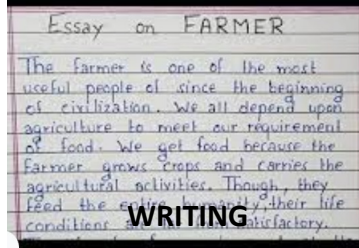 Essay on FARMER
The farmer is one of the most
useful people of since the beginning
of civilization. We all depend upon
agriculture to meet our requirement
of food. We get food because the
farmer grows crops and carries the
agricultural activities. Though, they
feed the entire humanity, their life
conditions are satisfactory.
WRITING